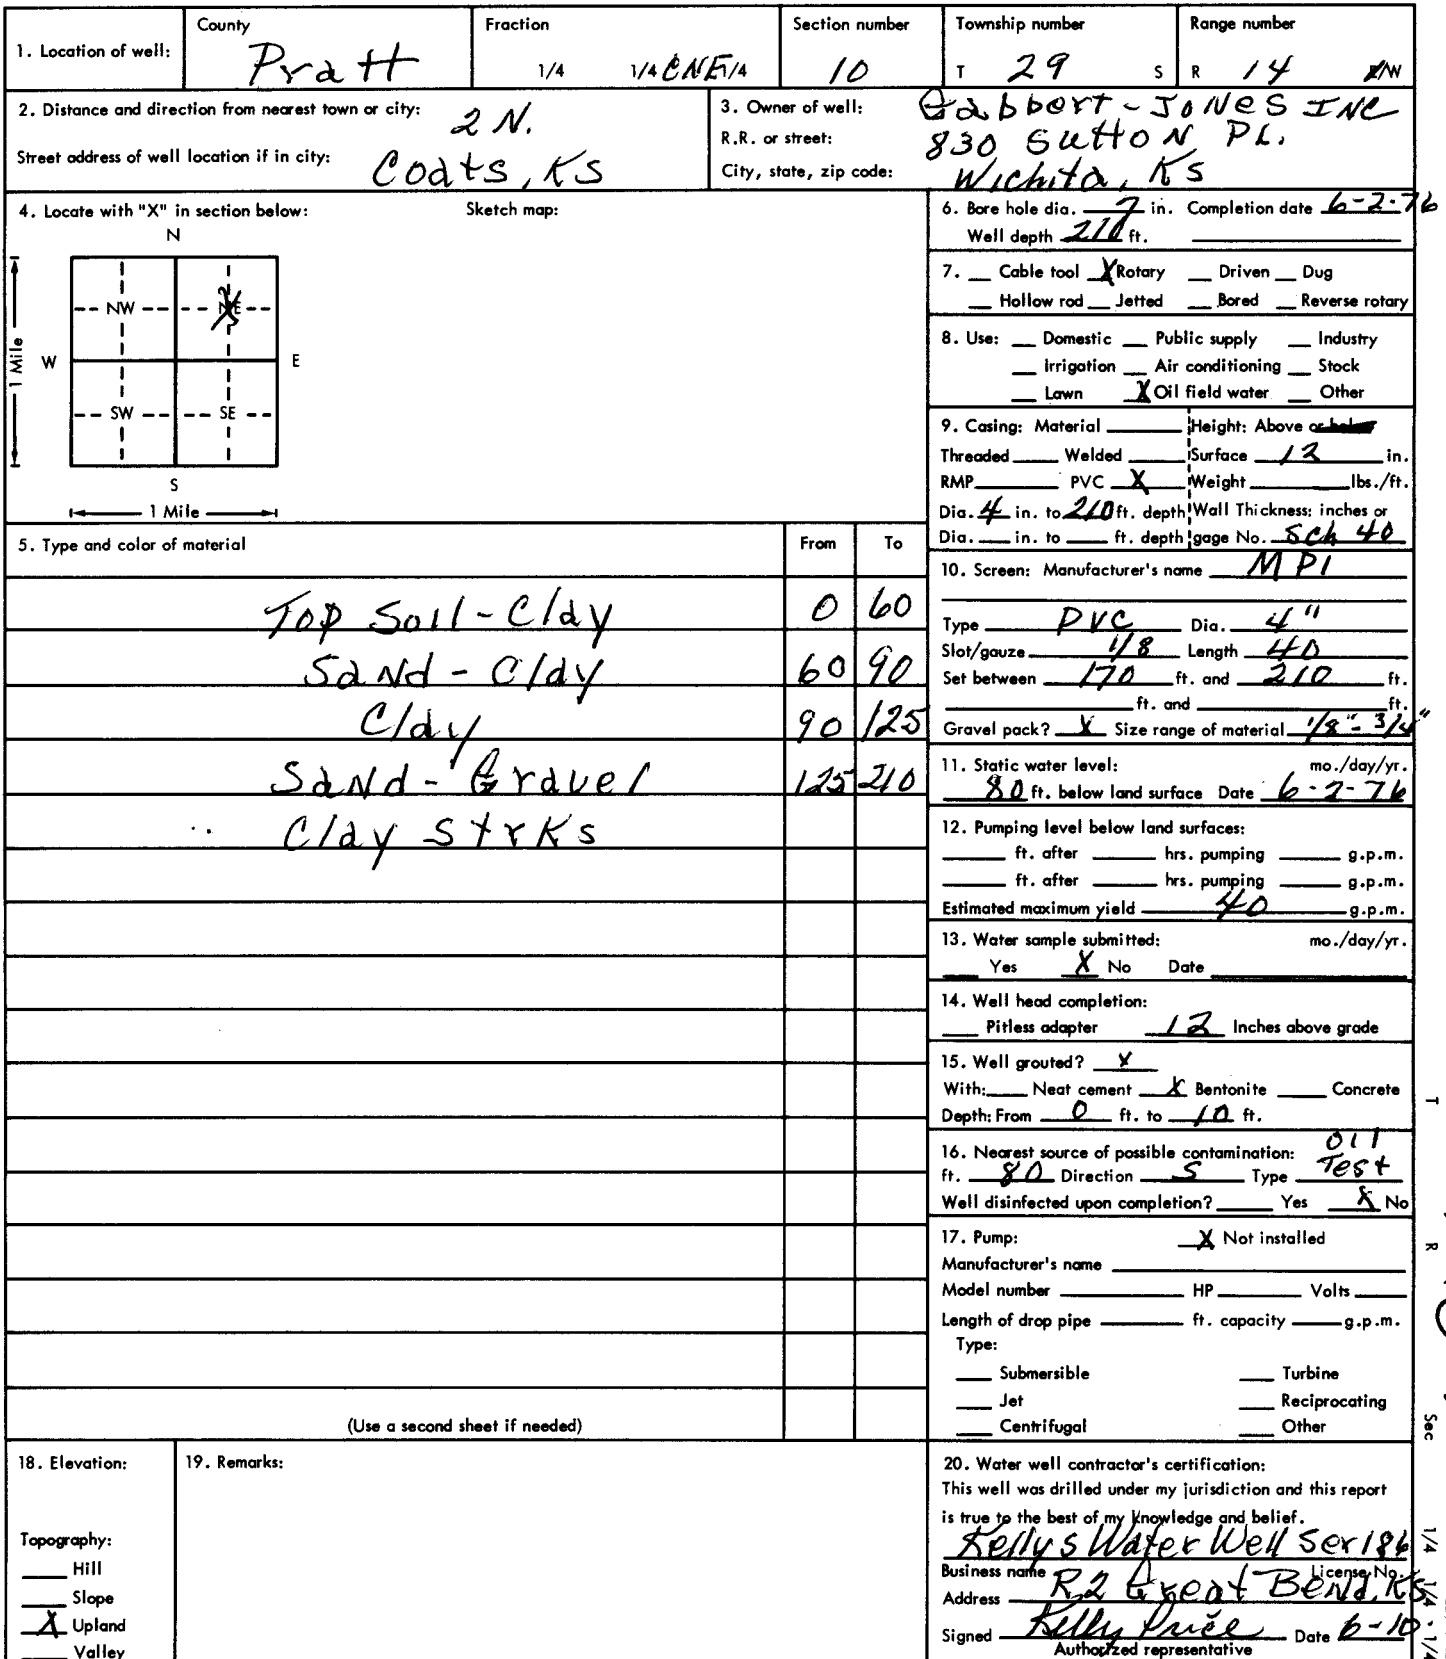 1. Location of well: County Pratt Fraction 1/4 1/4 CNE 1/4 Section number 10 Township number T 29 S Range number R 14 E/W
2. Distance and direction from nearest town or city: 2 N.
Street address of well location if in city: Coats, KS
3. Owner of well: Gabbert-Jones INC
R.R. or street: 830 Sutton PL.
City, state, zip code: Wichita, KS
4. Locate with "X" in section below: Sketch map:
N
NW NE
W E
1 Mile
SW SE
S
1 Mile
5. Type and color of material From To
Top Soil - Clay 0 60
Sand - Clay 60 90
Clay 90 125
Sand - Gravel 125 210
Clay Strks
(Use a second sheet if needed)
6. Bore hole dia. 7 in. Completion date 6-2-76
Well depth 210 ft.
7. __ Cable tool X Rotary __ Driven __ Dug
__ Hollow rod __ Jetted __ Bored __ Reverse rotary
8. Use: __ Domestic __ Public supply __ Industry
__ Irrigation __ Air conditioning __ Stock
__ Lawn X Oil field water __ Other
9. Casing: Material ____ Height: Above or below
Threaded ____ Welded ____ Surface 12 in.
RMP ____ PVC X Weight ____ lbs./ft.
Dia. 4 in. to 210 ft. depth Wall Thickness: inches or
Dia. ___ in. to ___ ft. depth gage No. Sch 40
10. Screen: Manufacturer's name MPI
Type PVC Dia. 4"
Slot/gauze 1/8 Length 40
Set between 170 ft. and 210 ft.
____ ft. and ____ ft.
Gravel pack? X Size range of material 1/8"-3/4"
11. Static water level: mo./day/yr.
80 ft. below land surface Date 6-2-76
12. Pumping level below land surfaces:
____ ft. after ____ hrs. pumping ____ g.p.m.
____ ft. after ____ hrs. pumping ____ g.p.m.
Estimated maximum yield 40 g.p.m.
13. Water sample submitted: mo./day/yr.
__ Yes X No Date ____
14. Well head completion:
__ Pitless adapter 12 Inches above grade
15. Well grouted? X
With: __ Neat cement X Bentonite __ Concrete
Depth: From 0 ft. to 10 ft.
16. Nearest source of possible contamination: Oil
ft. 80 Direction S Type Test
Well disinfected upon completion? __ Yes X No
17. Pump: X Not installed
Manufacturer's name ____
Model number ____ HP ____ Volts ____
Length of drop pipe ____ ft. capacity ____ g.p.m.
Type:
__ Submersible __ Turbine
__ Jet __ Reciprocating
__ Centrifugal __ Other
18. Elevation:
Topography:
__ Hill
__ Slope
X Upland
__ Valley
19. Remarks:
20. Water well contractor's certification:
This well was drilled under my jurisdiction and this report
is true to the best of my knowledge and belief.
Kellys Water Well Ser 186
Business name License No.
Address R.2 Great Bend, KS
Signed Kelly Price Date 6-10-
Authorized representative
T
R
Sec
1/4 1/4 1/4